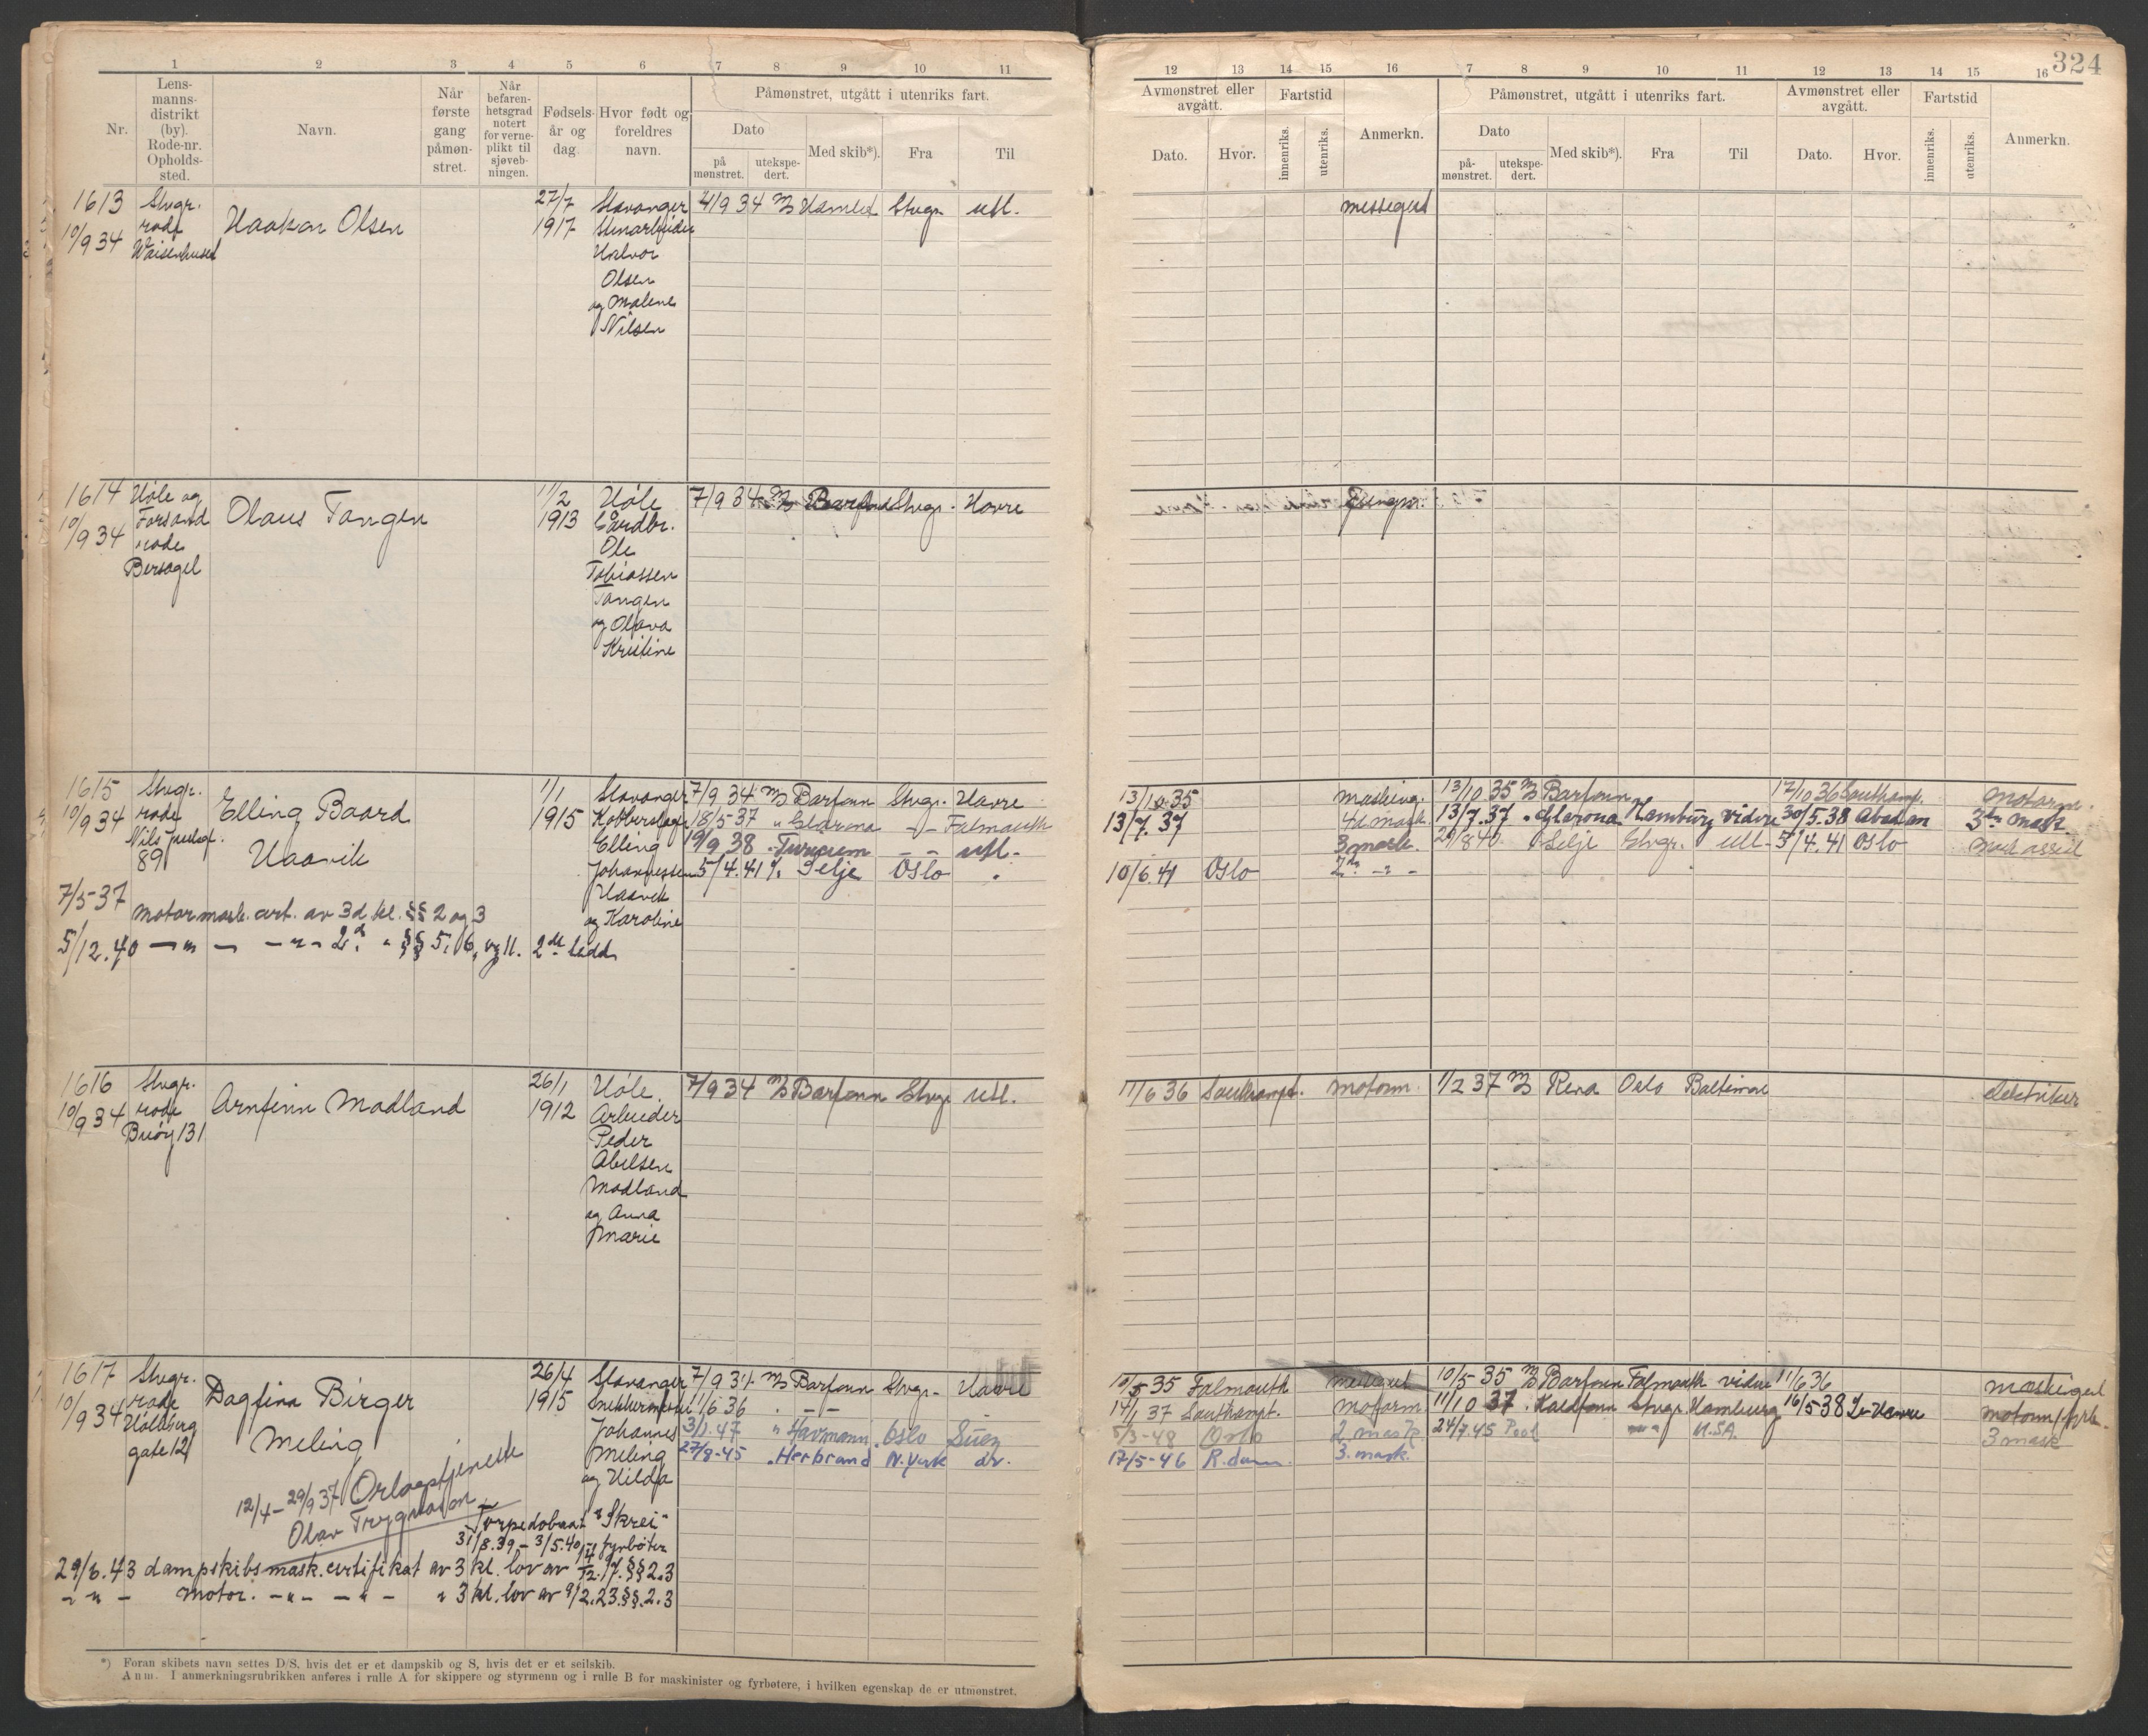 324
1 2 3 4 5 6 7 8 9 10 11
Nr.
Lens-
manns-
distrikt
(by).
Rode-nr.
Opholds-
sted.
Navn.
Når
første
gang
påmøn-
stret.
Når
befaren-
hetsgrad
notert
for verne-
plikt til
sjøveb-
ningen.
Fødsels-
år og
dag.
Hvor født og
foreldres
navn.
Påmønstret, utgått i utenriks fart.
Dato
på
mønstret.
utekspe-
dert.
Med skib*).
Fra
Til
12 13 14 15 16 7 8 9 10 11 12 13 14 15 16
Avmønstret eller
avgått.
Dato.
Hvor.
Fartstid
innenriks.
utenriks.
Anmerkn.
Påmønstret, utgått i utenriks fart.
Dato
på-
mønstret.
utekspe-
dert.
Med skib*).
Fra
Til
Avmønstret eller
avgått.
Dato.
Hvor.
Fartstid
innenriks.
utenriks.
Anmerkn.
1613
10/9 34
Stvgr.
rode
Waisenhuset
Haakon Olsen
27/7
1917
Stavanger
Stenarbeider
Halvor
Olsen
og Malene
Nilsen
4/9 34 Stvgr. utl.
messegut
1614
10/9 34
Høle og
Forsand
rode
Bersagel
Olaus Tangen
11/2
1913
Høle
Gårdbr.
Ole
Tobiassen
Tangen
og Olava
Kristine
7/9 34 M/S Barfonn Stvgr. Havre
Jungm.
1615
10/9 34
Stvgr.
rode
89
Elling Baard
Haavik
1/1
1915
Stavanger
Elling
Johannessen
Haavik
og Karoline
7/9 34 M/S Barfonn Stvgr. Havre
18/5-37 " Glarona - - Falmouth
19/9 38 - - utl.
5/4.41 Selje Oslo
7/5-37 motormask. cert. av 3d kl. §§ 2 og 3
5/12.40 - " - - " - 2d. " §§ 5, 6, og 11. 2det ledd.
13/10 35
13/7.37 4d mask.
3 mask.
10/6.41 Oslo 2. - " -
13/10 35 M/S Barfonn 17/10 36 Southamp. motorm.
13/7.37 " Glarona Hamburg vidre 30/5.38 Abadan 3die mask
29/8 40 Selje Stvgr. utl. 5/4.41 Oslo
1616
10/9 34
Stvgr.
rode
Buøy 131
Arnfinn Madland
26/1
1912
Høle
Arbeider
Peder
Abelsen
Madland
og Anna
Marie
7/9 34 M/S Barfonn Stvgr. utl.
11/6 36 Southampt. motorm. 1/2 37 M/S Rena Oslo Baltimore elektriker
1617
10/9 34
Stvgr.
rode
Holberg
gate 12
Dagfinn Birger
Meling
26/4
1915
Stavanger
Snekkermester
Johannes
Meling
og Hilda
7/9 34 M/S Barfonn Stvgr. Havre
11/6 36 - " -
3/1.47 " Havmann Oslo Suez
27/8-45 " Herbrand N. York do.
12/4-29/9 37 Orlogstjeneste
Olav Trygvason
Torpedobaat "Skrei"
31/8.39 - 3/5.40 fyrbøter
29/6.43 dampskibsmask. certifikat av 3 kl. lov av 17. §§ 2.3
- " - motor. - " - - " - " 3 kl. lov av 9/2.23. §§. 2.3
10/5 35 Falmouth messegut 10/5-35 M/S Barfonn Falmouth vidre 11/6 36 maskingut
14/1 37 Southampt. motorm. 11/10 37 Kaldfonn Stvgr. Hamburg 16/5-38 Le Havre motorm/fyrb.
5/3-48 Oslo 2 mask. 24/7.45 Pool U.S.A. 3 mask
17/5-46 R.dam. 3. mask.
*) Foran skibets navn settes D/S, hvis det er et dampskib og S, hvis det er et seilskib.
Anm. I anmerkningsrubrikken anføres i rulle A for skippere og styrmenn og i rulle B for maskinister og fyrbøtere, i hvilken egenskap de er utmønstret.